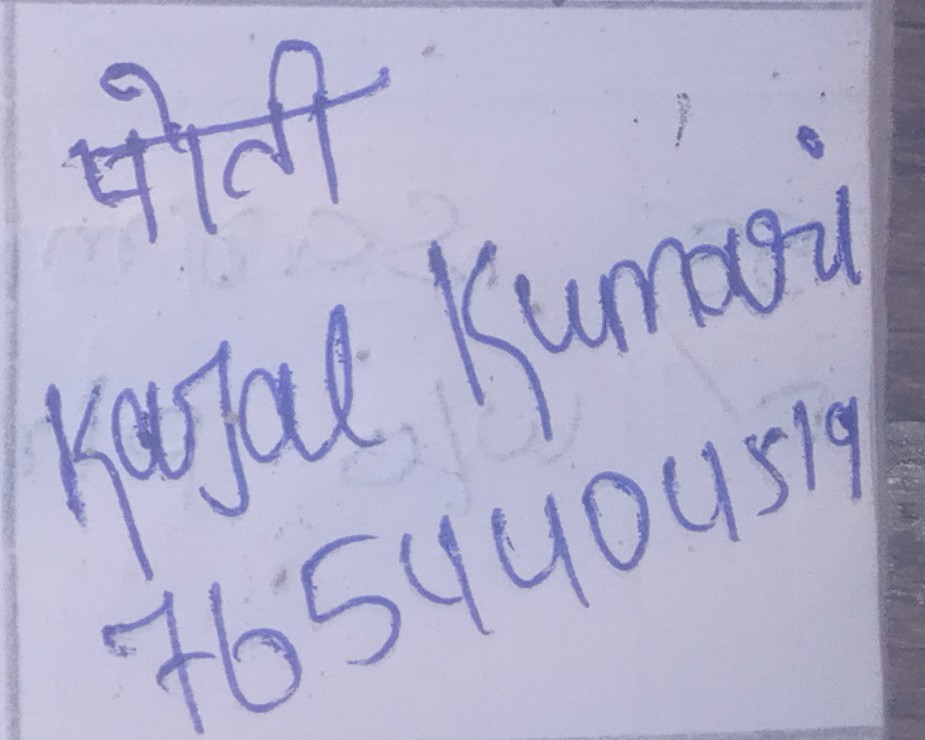 पोती
Kajal Kumari
7654404519